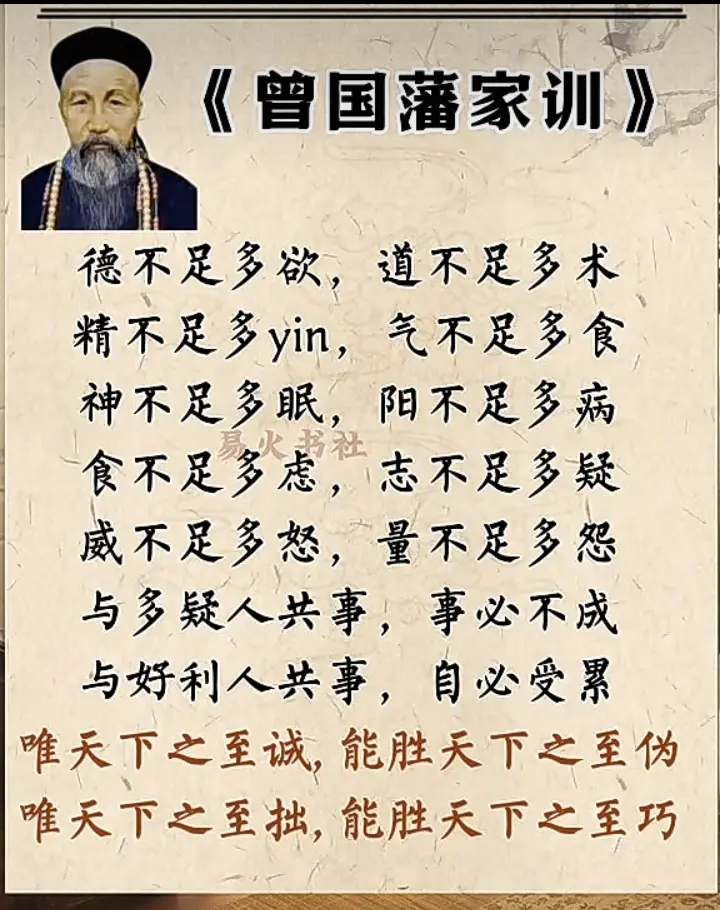 《曾国藩家训》
德不足多欲，道不足多术
精不足多yin，气不足多食
神不足多眠，阳不足多病
易火书社
食不足多虑，志不足多疑
威不足多怒，量不足多怨
与多疑人共事，事必不成
与好利人共事，自必受累
唯天下之至诚，能胜天下之至伪
唯天下之至拙，能胜天下之至巧